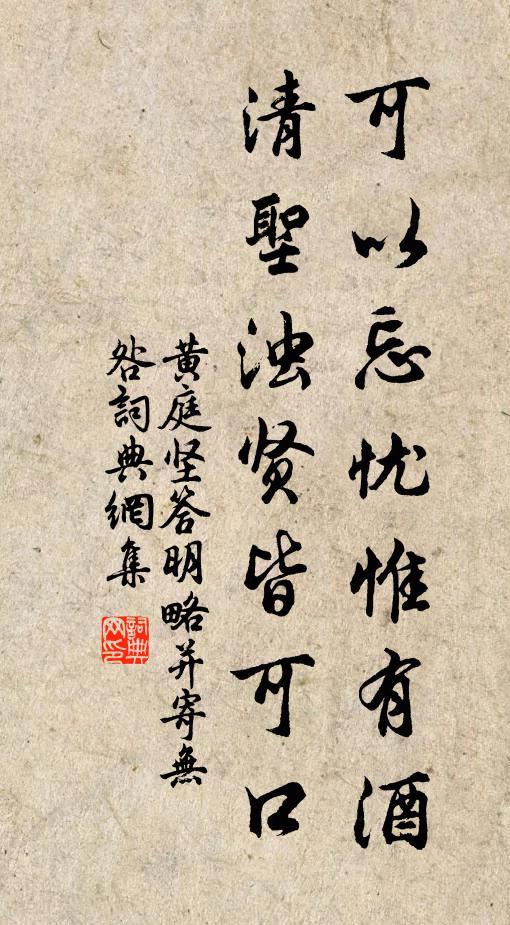 可以忘忧惟有酒
清聖浊贤皆可口
黄庭坚答明略并寄無
咎詞典網集
詞典
网印